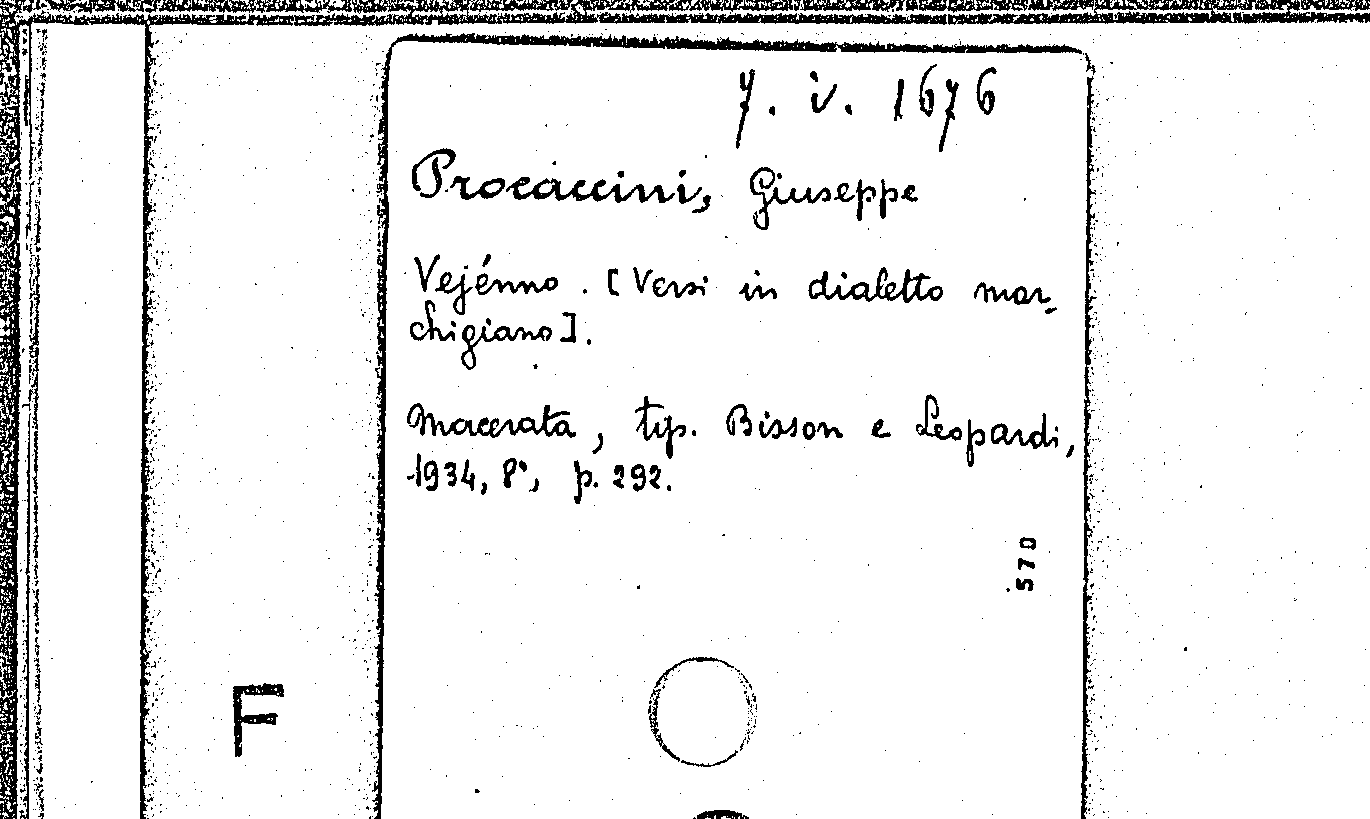 7. iv. 1676
Procaccini, Giuseppe
Vejénno. [Versi in dialetto mar-
chigiano].
Macerata, tip. Bisson e Leopardi,
1934, 8°, p. 292.
570
F